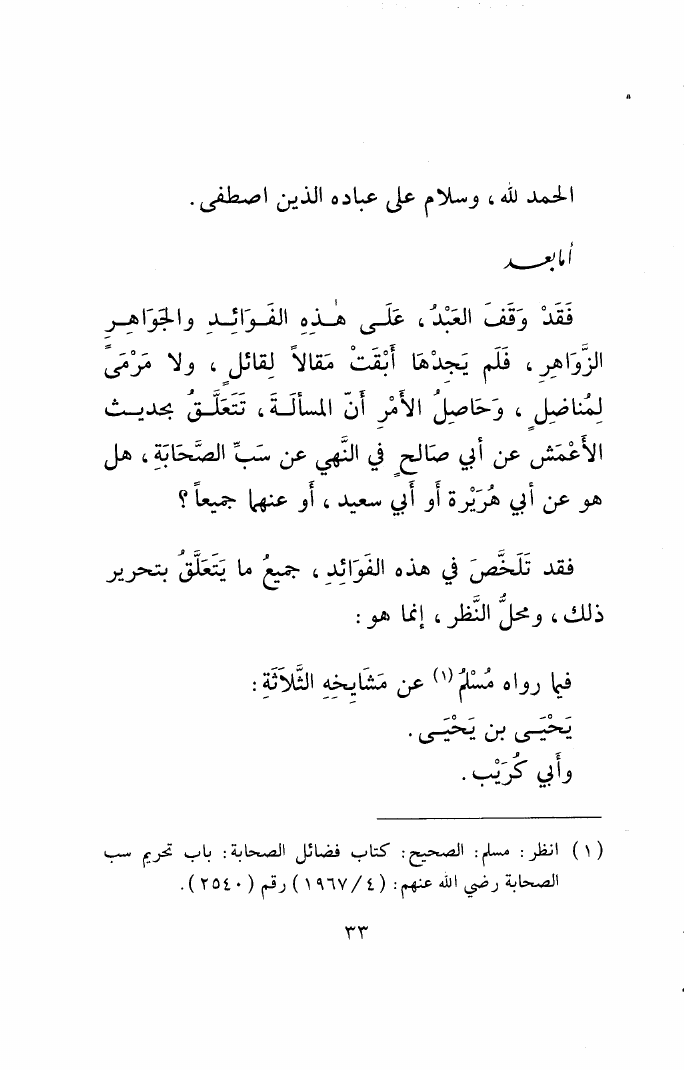 الحمد لله ، وسلام على عباده الذين اصطفى .
أما بعد
فَقَدْ وَقَفَ العَبْدُ ، عَلَى هٰذِهِ الفَوَائِدِ والجَوَاهِرِ
الزَّوَاهِرِ ، فَلَم يَجِدْهَا أَبْقَتْ مَقالاً لِقائلٍ ، ولا مَرْمَىً
لِمُناضِلٍ ، وَحَاصِلُ الأَمْرِ أَنّ المسألَةَ ، تَتَعَلَّقُ بحديث
الأَعْمَش عن أبي صَالحٍ في النَّهي عن سَبِّ الصَّحَابَةِ ، هل
هو عن أبي هُرَيْرة أو أبي سعيد ، أو عنهما جميعاً ؟
فقد تَلَخَّصَ في هذه الفَوَائِدِ ، جميعُ ما يَتَعَلَّقُ بتحرير
ذلك ، ومحلُّ النَّظر ، إنما هو :
فيما رواه مُسْلمٌ (١) عن مَشَايِخِهِ الثَّلاَثَةِ :
يَحْيَى بن يَحْيَى .
وأبي كُرَيْب .
(١) انظر : مسلم : الصحيح : كتاب فضائل الصحابة : باب تحريم سب
الصحابة رضي الله عنهم : (٤/ ١٩٦٧) رقم (٢٥٤٠) .
٣٣